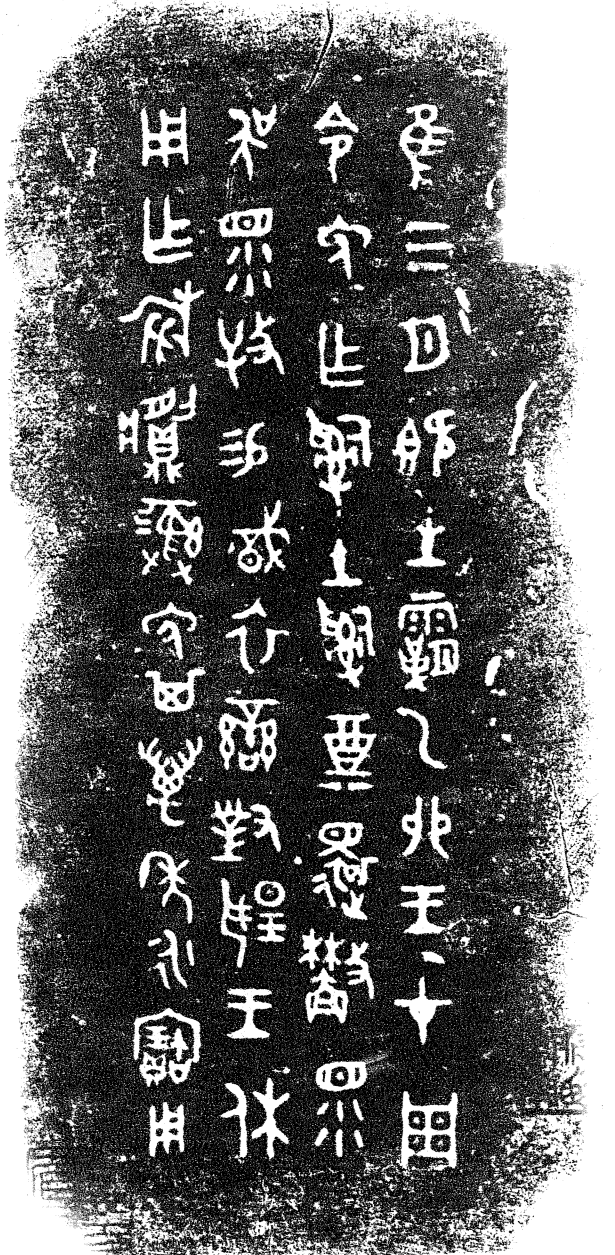 隹三月既生霸乙卯王才周
令免乍𤔲土𤔲奠還眔
吳眔牧易戠衣䜌對揚王休
用乍旅䵼彝免其萬年永寶用